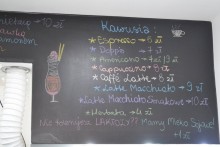 10 zł
Kawusia:
Espresso - 6 zł
Doppio - 7 zł
Americano - 7 zł
Cappuccino - 8 zł
Caffe Latte - 8 zł
Latte Macchiato - 9 zł
Latte Macchiato Smakowe - 10 zł
Herbata - 4 zł
Nie tolerujesz LAKTOZY?? Mamy Mleko Sojowe!
+1 zł